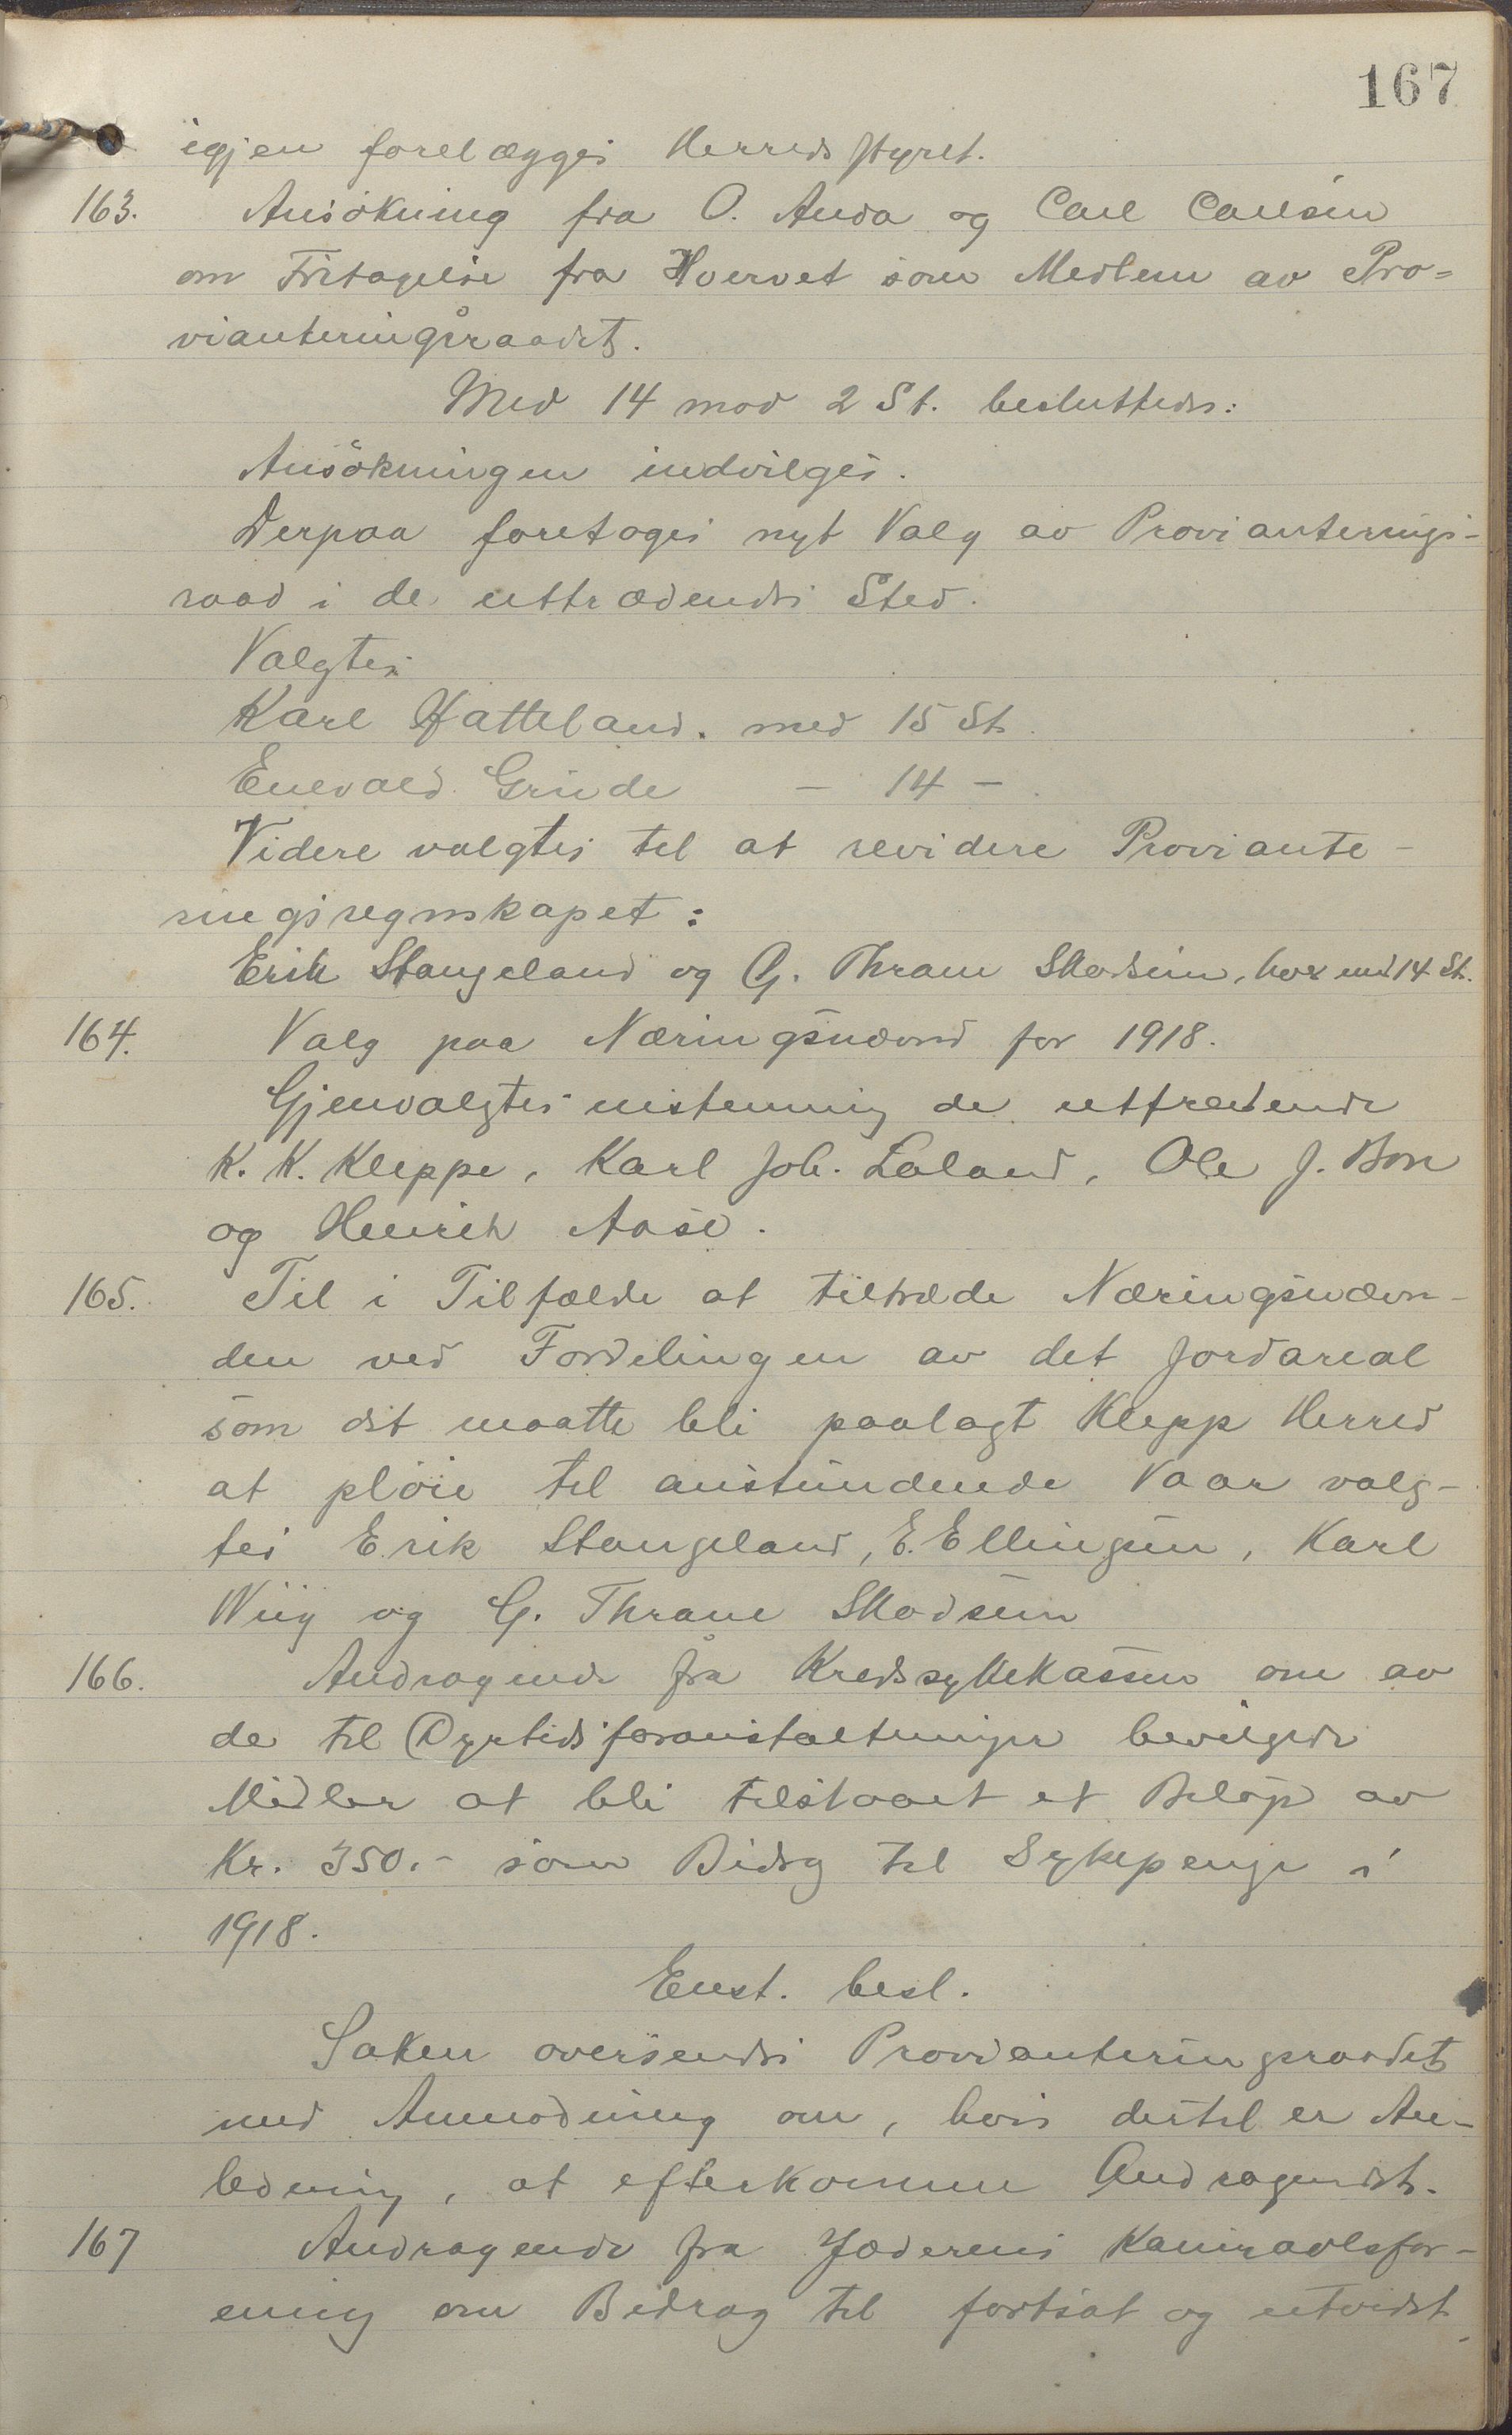 167
igjen forelægges Herredsstyret.
163. Ansökning fra O. Anda og Carl Carlsen
om Fritagelse fra Hvervet som Medlem av Pro=
vianteringsraadet.
Med 14 mod 2 St. besluttedes:
Ansökningen indvilges.
Derpaa foretoges nyt Valg av Provianterings-
raad i de uttrædendes Sted.
Valgtes
Karl Hatteland. med 15 St.
Enevald Grude - 14 -
Videre valgtes til at revidere Proviante-
ringsregnskapet:
Erik Stangeland og G. Thrane Skadsem, hver med 14 St.
164. Valg paa Næringsnævnd for 1918.
Gjenvalgtes enstemmig de uttrædende
K. K. Kleppe, Karl Joh. Laland, Ole J. Bore
og Henrik Aase.
165. Til i Tilfælde at tiltræde Næringsnævn-
den ved Fordelingen av det Jordareal
som det maatte bli paalagt Klepp Herred
at plöie til anstundende Vaar valg-
tes Erik Stangeland, E. Ellingsen, Karl
Wiig og G. Thrane Skadsem
166. Andragende fra Kredssykekassen om av
de til Dyrtidsforanstaltninger bevilgede
Midler at bli tilstaaet et Belöp av
Kr. 350.- som Bidrg til Sykepenge i
1918.
Enst. besl.
Saken oversendes Provianteringsraadet
med Anmodning om, hvis dertil er An-
ledning, at efterkomme Andragendet.
167 Andragende fra Jæderens Kaninavlsfor-
ening om Bidrag til fortsat og utvidet